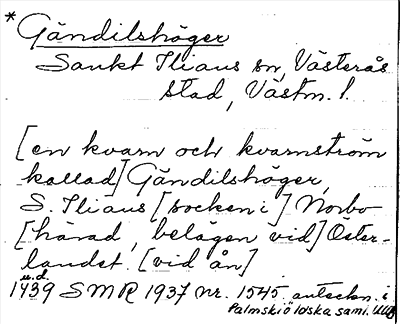 * Gändilshöger
Sankt Ilians sn, Västerås
stad, Västm. l.
[en kvarn och kvarnström
kallad] Gändilshöger,
S. Ilians [socken i] Norbo
[härad, belägen vid] Öster-
landet. [vid ån]
u.d.
1439 SMR 1937 nr. 1545 anteckn. i
Palmskiöldska saml. UUB